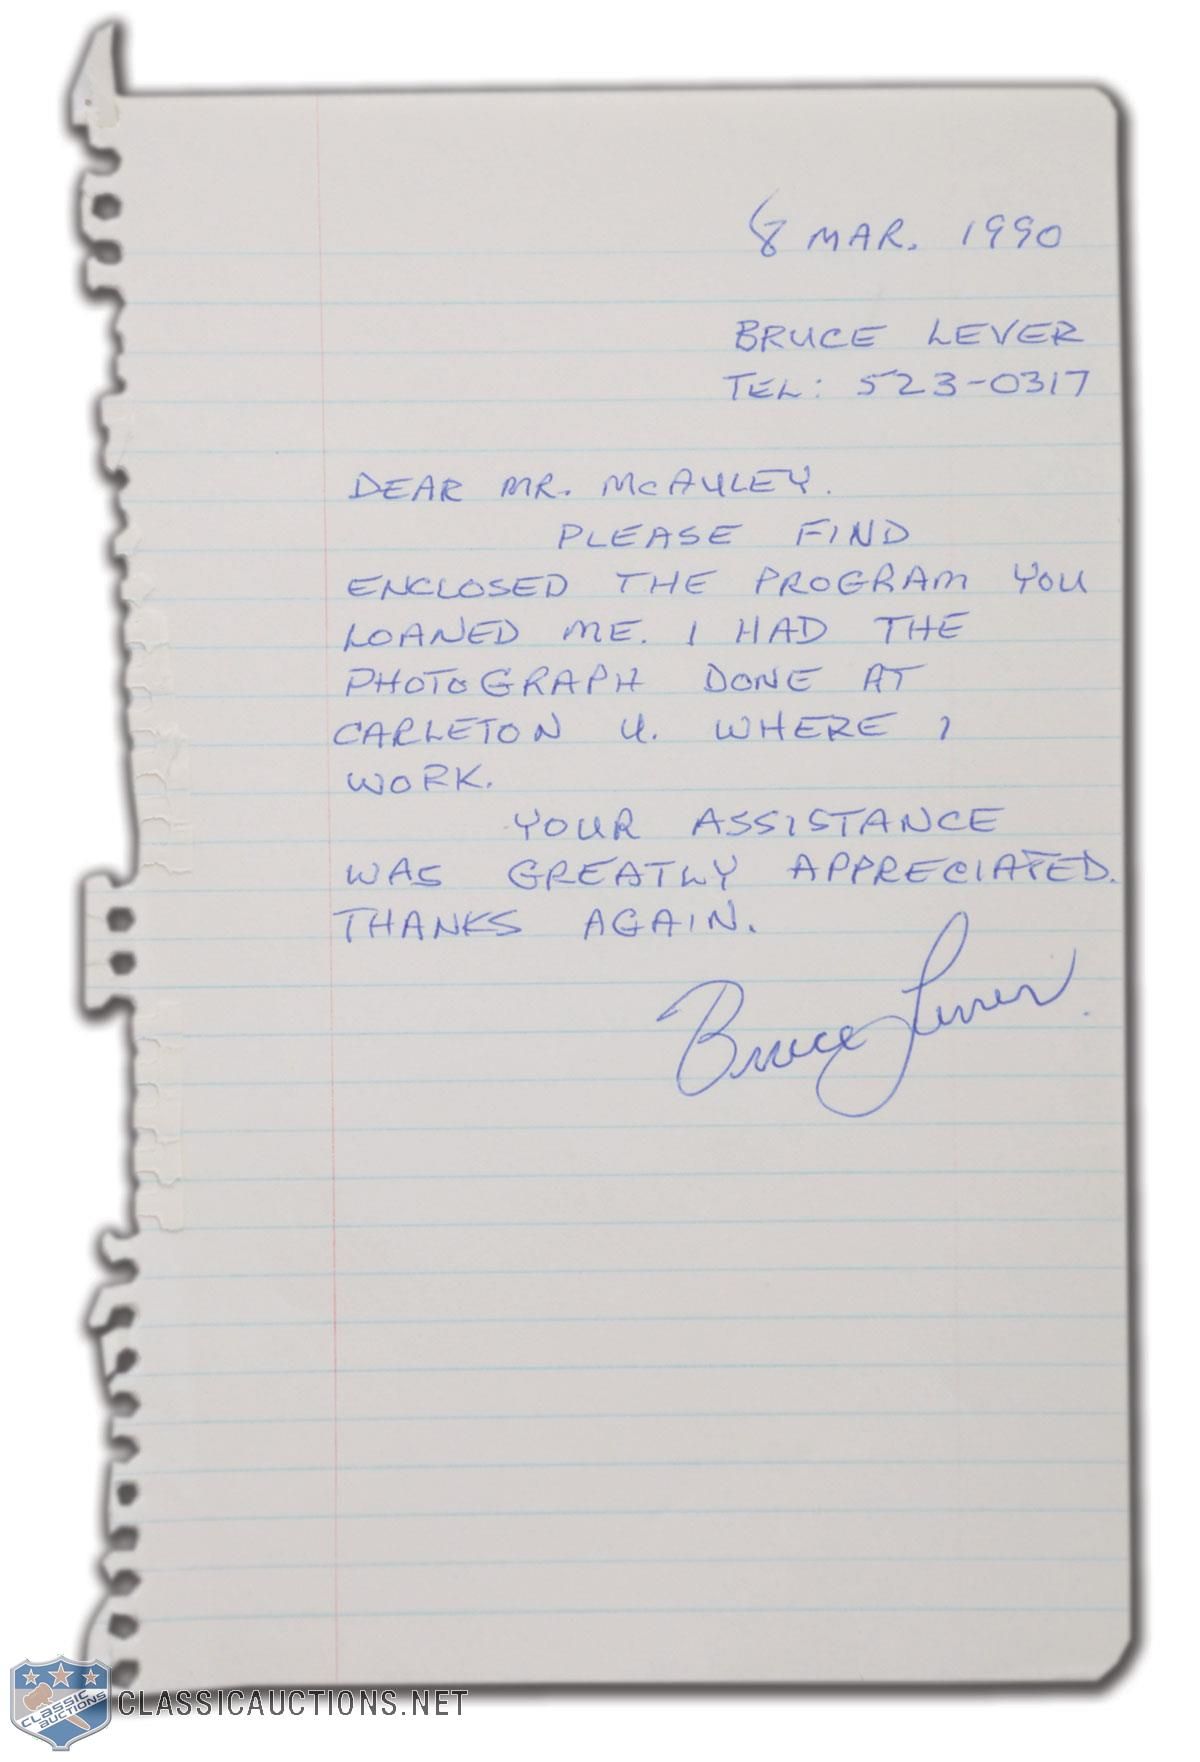 8 MAR. 1990
BRUCE LEVER
TEL: 523-0317
DEAR MR. MCAULEY.
PLEASE FIND
ENCLOSED THE PROGRAM YOU
LOANED ME. I HAD THE
PHOTOGRAPH DONE AT
CARLETON U. WHERE I
WORK.
YOUR ASSISTANCE
WAS GREATLY APPRECIATED.
THANKS AGAIN.
Bruce Lever.
CLASSIC AUCTIONS
CLASSICAUCTIONS.NET